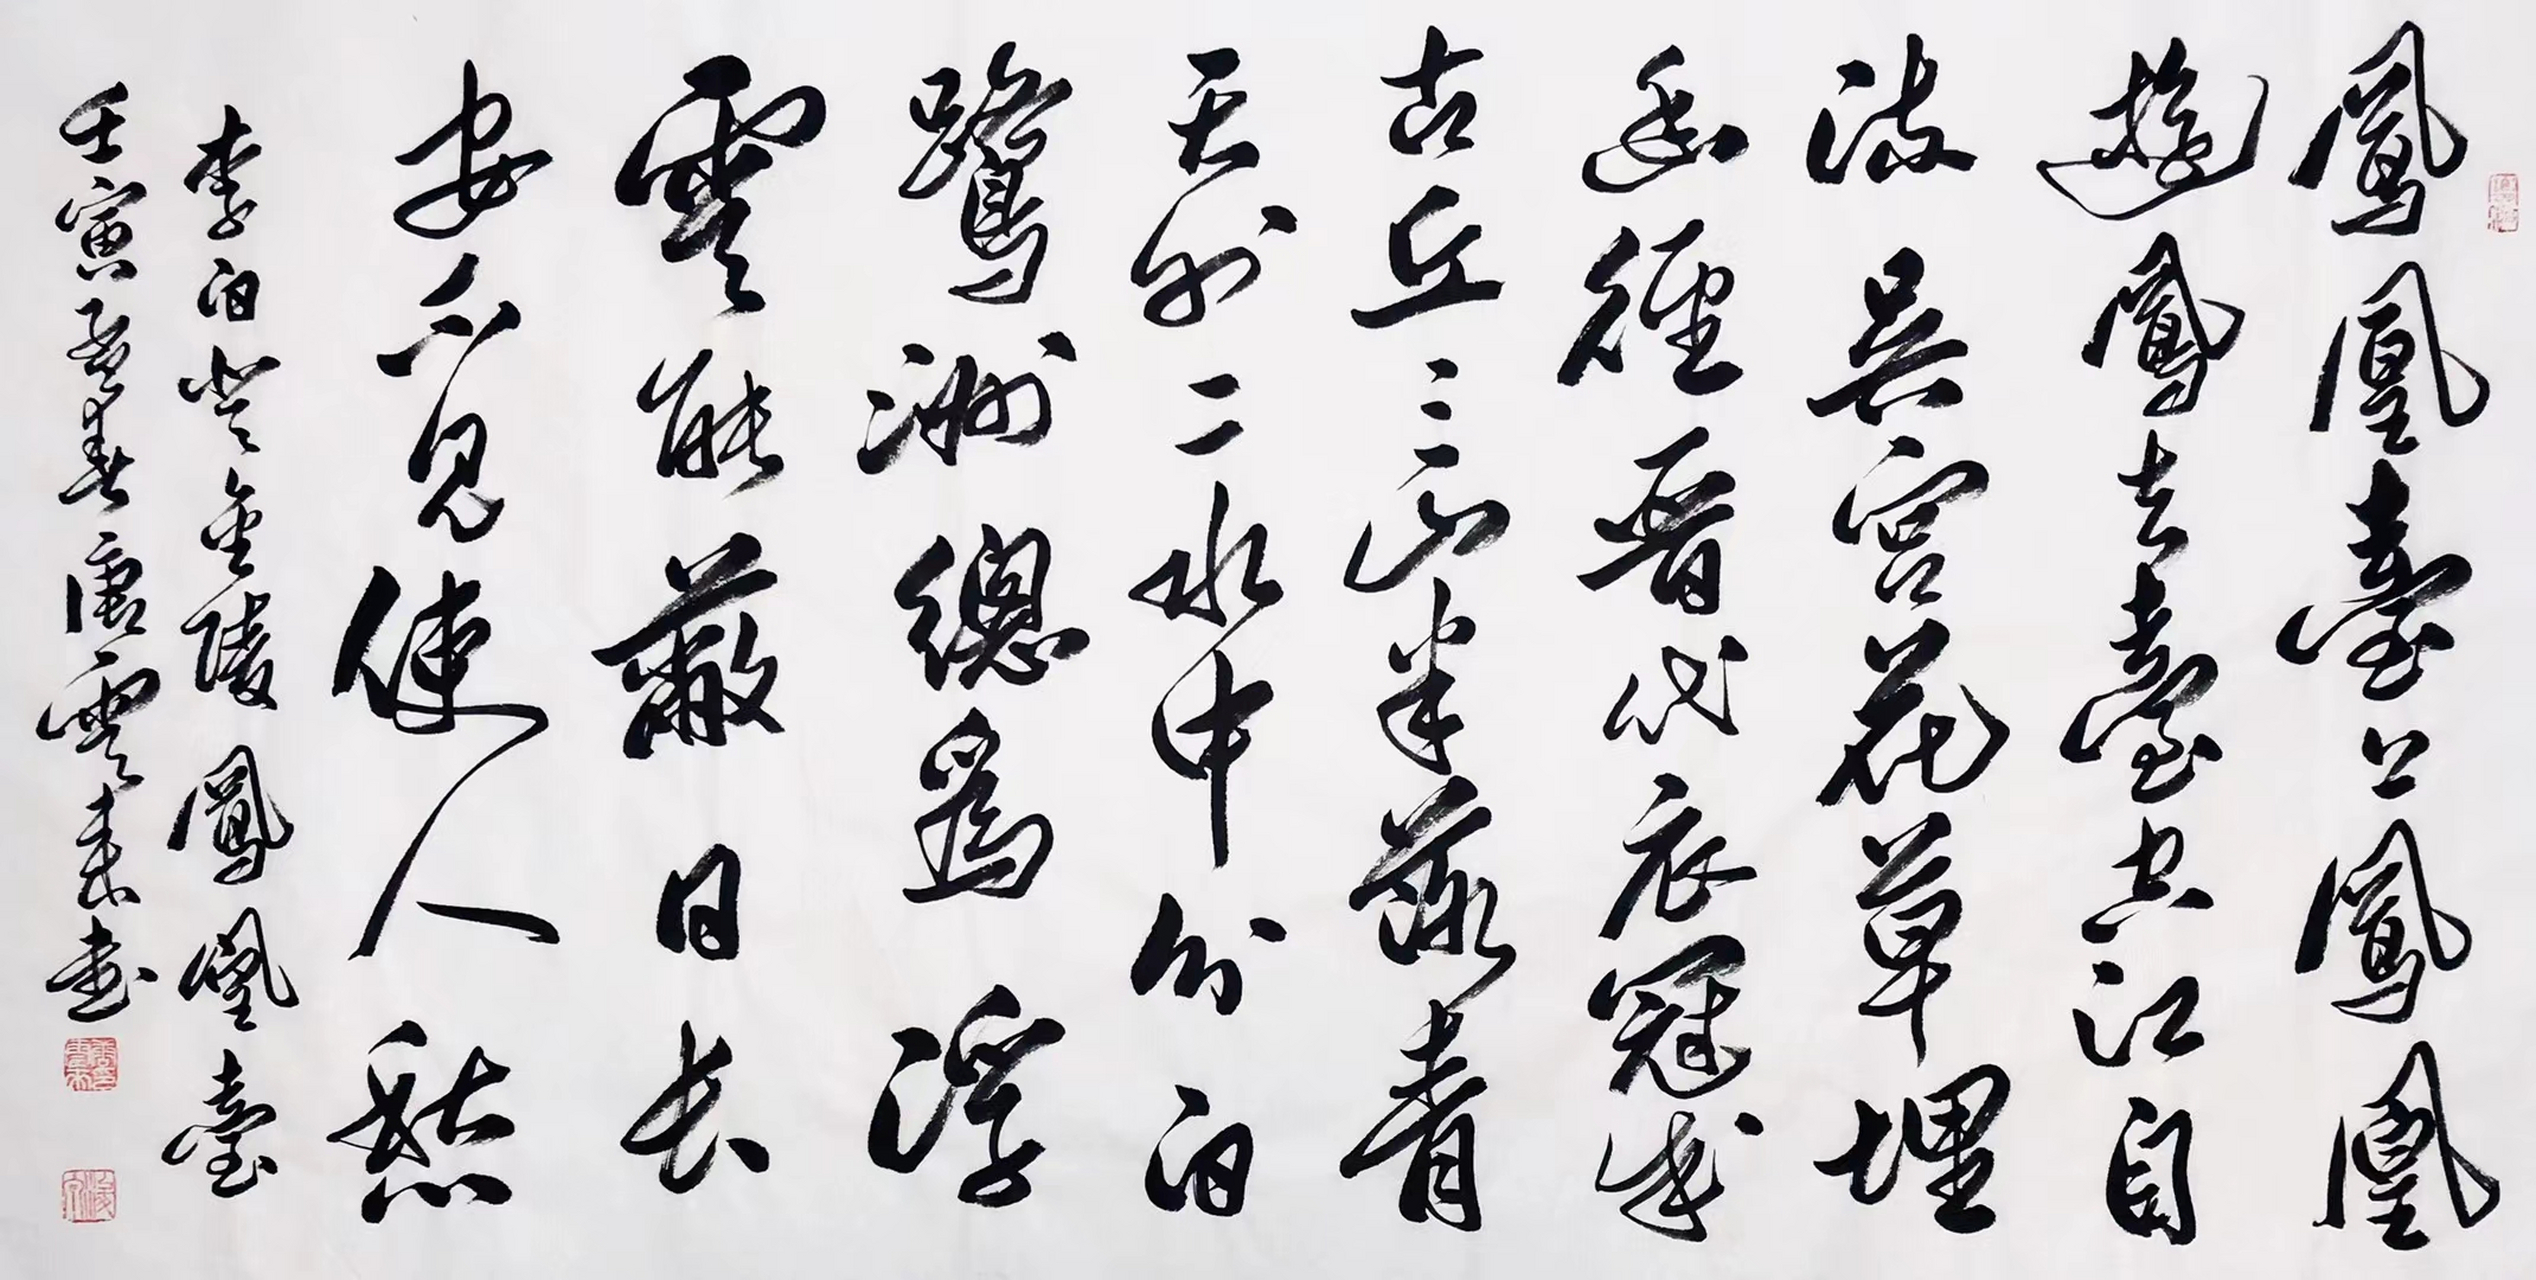 鳳凰臺上鳳凰
遊鳳去臺空江自
流吳宮花草埋
幽徑晉代衣冠成
古丘三山半落青
天外二水中分白
鷺洲總爲浮
雲能蔽日長
安不見使人愁
李白登金陵鳳凰臺
壬寅孟春唐雲来書